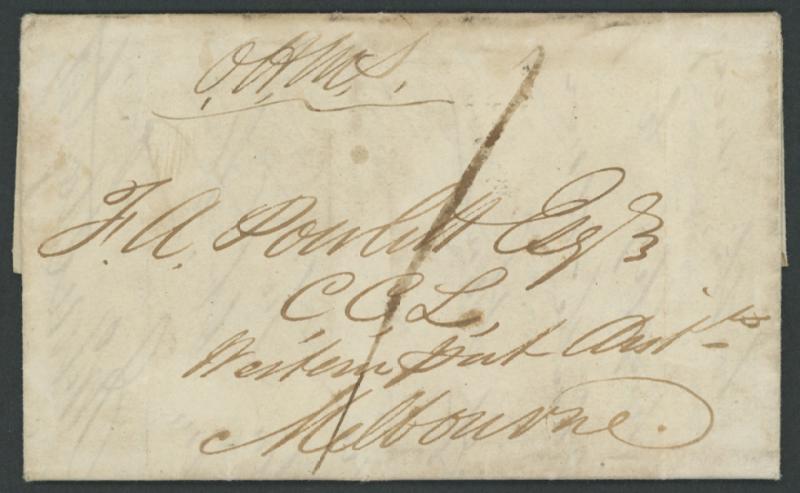 O.H.M.S.
F. A. Powlett Esqr
C. C. L.
Western Port Distts
Melbourne.